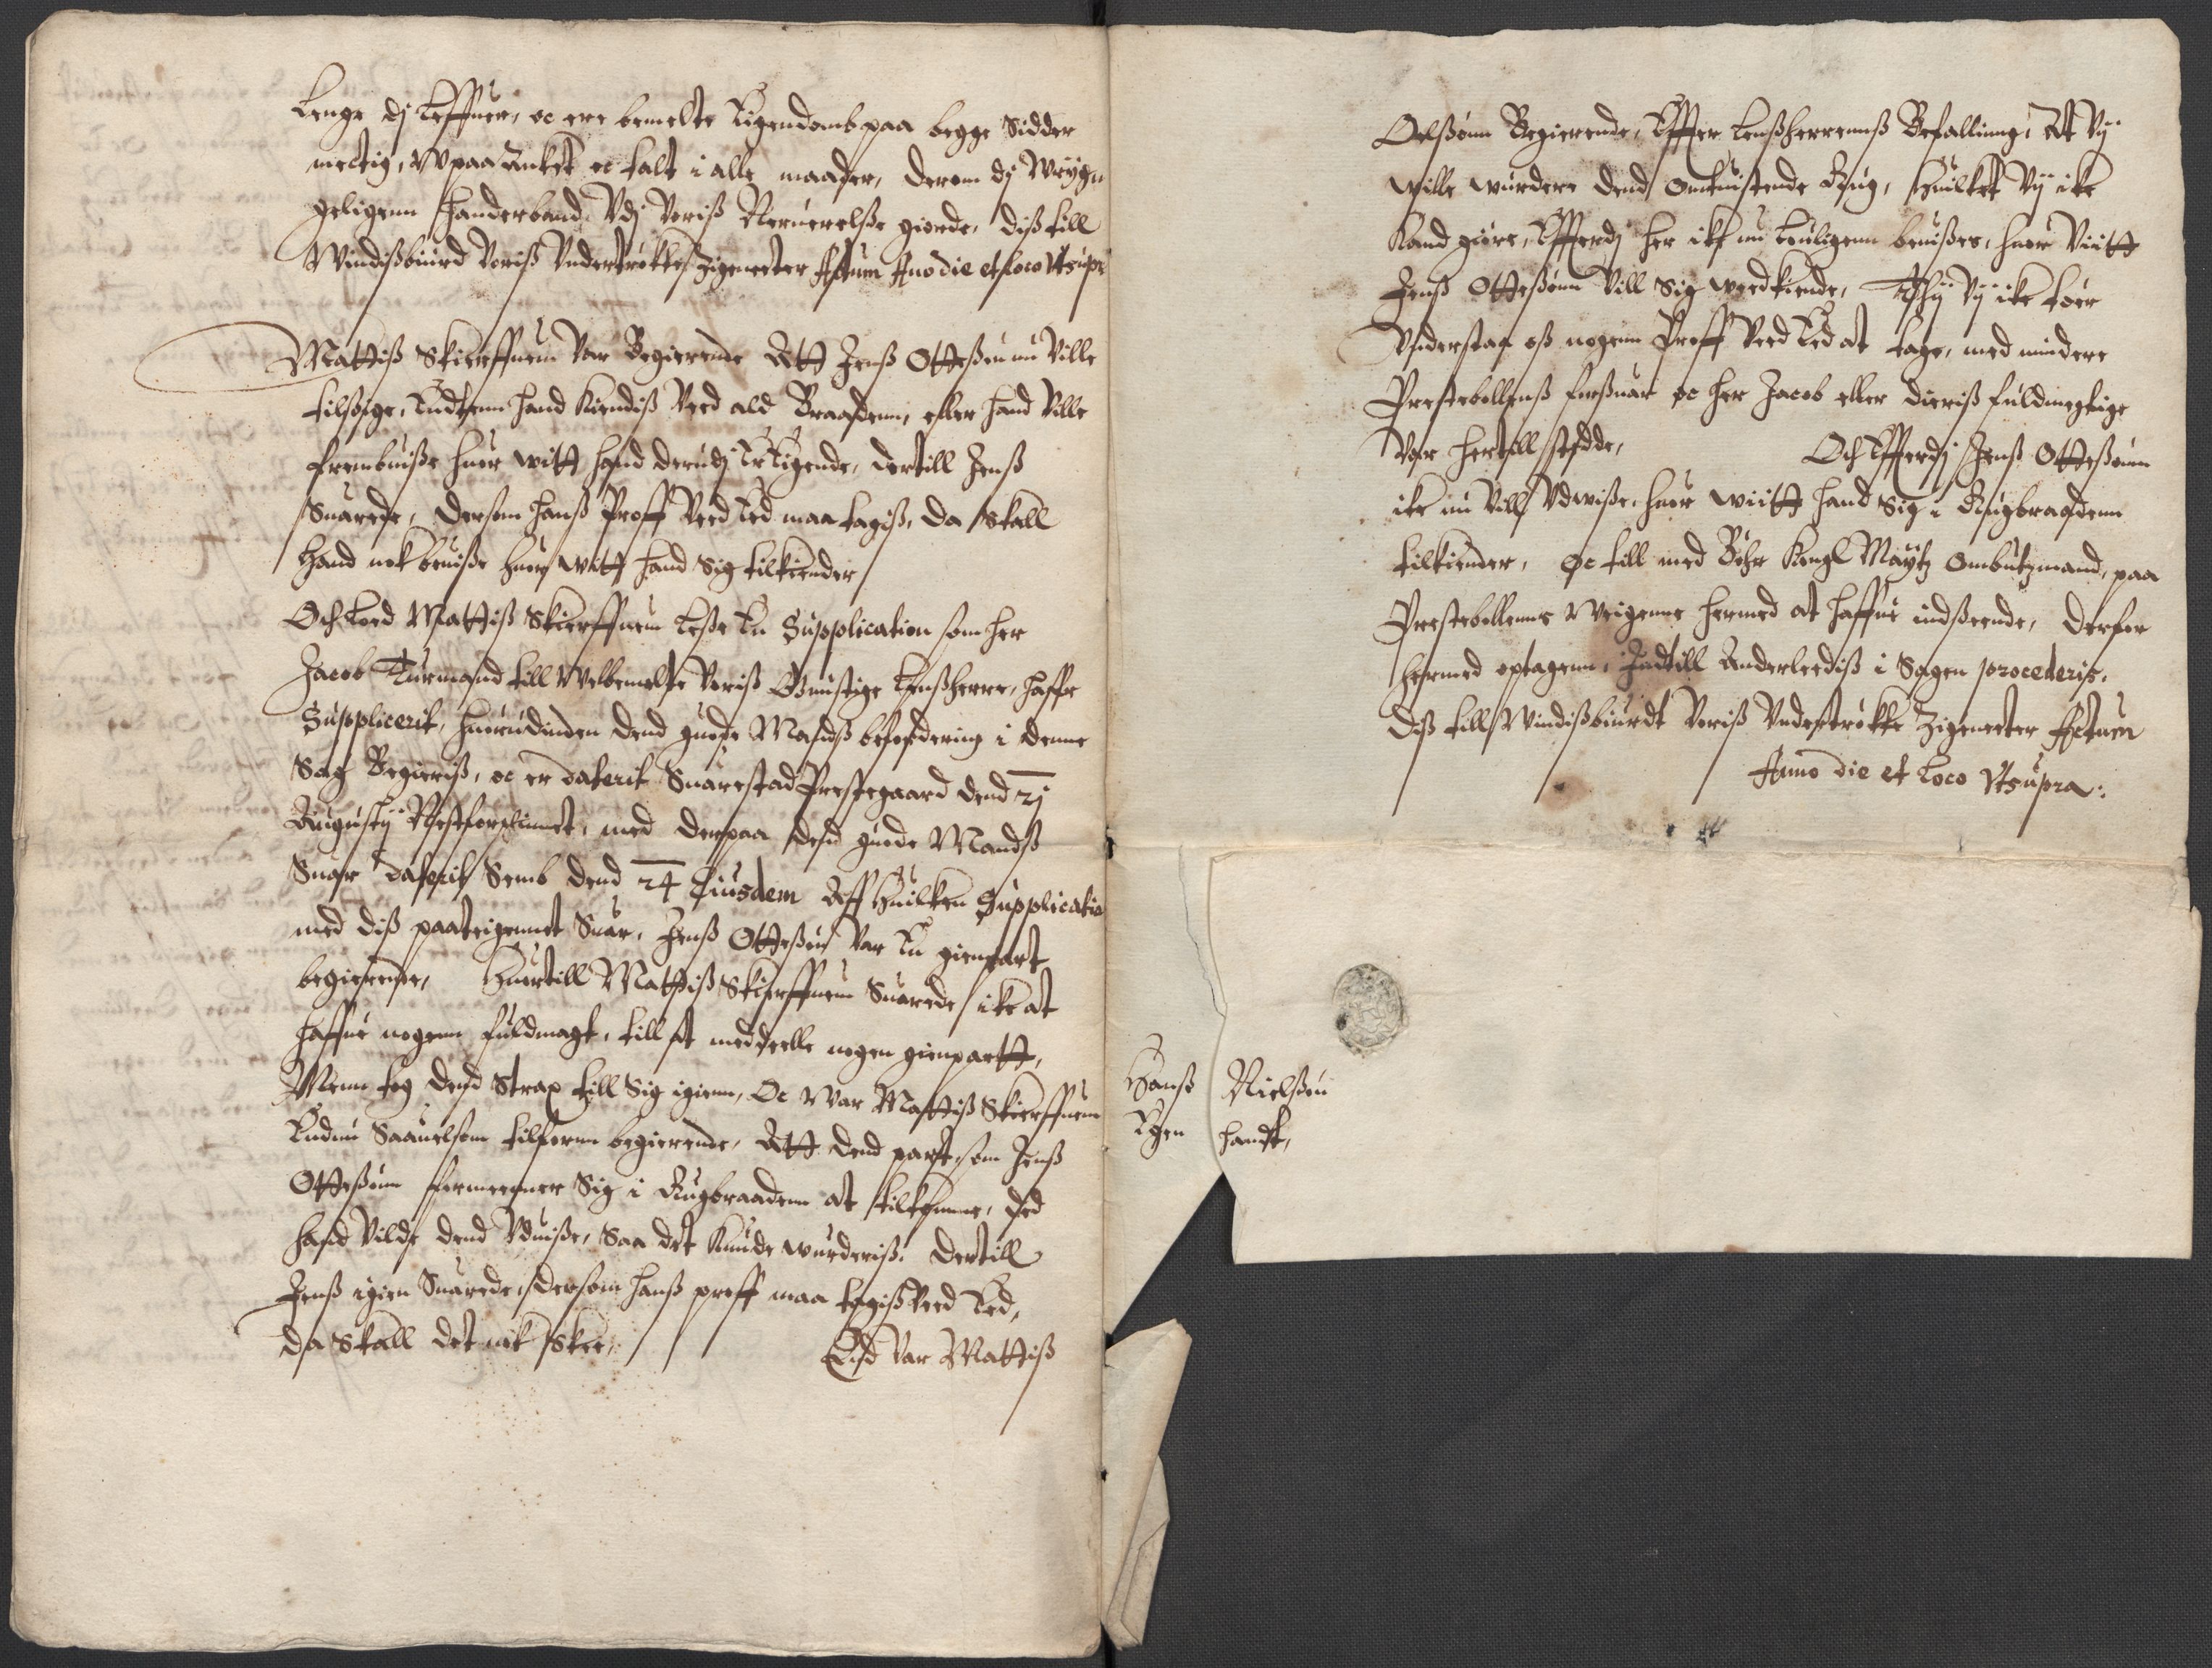 Lenge dj Leffuer, oc ere bemelte Eigendomb paa begge Sidder
mectig, Vpaa Anket oc talt i alle maader, derom dj
geligenn haanderband Vdj Voriß Neruerelße giorde, diß till
Windißbiurd Voriß Vndertrökte Zigneeter Actum Ano die et Loco Vtsupr
Mattiß Skierffuem Var Begierende Att Jenß Otteßøn nu Ville
tilsige, huad hand Kiendiß Ved ald Braadenn, eller hand Ville
frembuiße huor witt hand derudj Er Eigende, dertill Jenß
Suarede, dersom hanß Proff Ved Ed maa tagiß, da skall
Hand nok beuiße huor witt hand Sig tilkiender
Och Lod Mattiß Skierffuem Leße En Supplication som her
Jacob Turmand till Welbemelte Voriß Gunstige Lenßherre, haffr
Supplicerit, huorudinden dend guode Mandß befordering i denne
Sag Begieriß, oc er daterit Suarestad Prestegaard dend 21
Augustij Nestforleinnet, med derpaa dend guode Mandß
Suar daterit Semb dend 24 Eiusdem Aff Huilken Supplicatio
med diß paateigennet Suar, Jenß Otteßøn Var En gienpart
begierende, Huortill Mattiß Skierffuem Suarede ike at
haffue nogenn fuldmagt, till at meddeelle nogen gienpartt,
Menn tog dend Strax till Sig igienn, Oc War Mattiß Skierffuem
Endnu Saauelsom tilforne begierende, Att dend part som Jenß
Otteßønn formeener Sig i Rugbraadenn at tilkomme, det
hand Vilde dend Vduiße, Saa det Kunde wurderiß. dertill
Jenß igien Suarede, dersom hanß proff maa tagiß Ved Ed,
da Skall det nok Skee, End Var Mattiß
Oelßønn Begierende, Effter Lenßherrennß Befalling, At Vij
wille wurdere dend omtuistende Rug, Huilket Vij ike
Kand giøre, Effterdj her ike nu louligenn beuißes, huor Viitt
Jenß Otteßønn Vill Sig wedkiende, Thij Vij ike tør
Vnderstaa oß nogenn Proff Ved Ed at tage, med mindere
Prestebollenß forßuar oc her Jacob eller dieriß fuldmegtige
Var hertill stedde, Och Effterdj Jenß Otteßønn
ike nu Vill Vdwiße, huor wiitt hand Sig i Rugbraadenn
tilkiender, Oc till med Bør Kongl Maytz ombutzmand, paa
Prestebollenns Weigenne hermed at haffue indseende, derfor
hermed optagenn, Indtill Anderleediß i Sagen procederis,
diß till Windißbiurdt Voriß Vndertrökte Zigneeter Actum
Anno die et Loco Vtsupra.
Hanß Nielßøn
Egen handt,